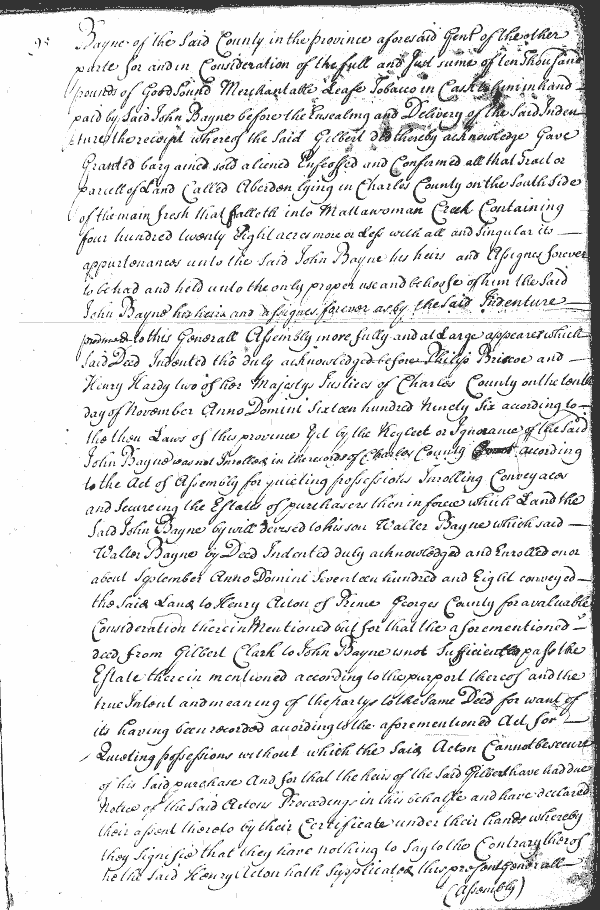 95
Bayne of the Said County in the province aforesaid Gent of the other
parte for and in Consideration of the full and Just sume of ten Thousand
pounds of Good Sound Merchantable Leafe Tobacco in Cask to him in hand
paid by Said John Bayne before the Ensealing and Delivery of the Said Inden
ture the receipt whereof the Said Gilbert did thereby acknowledge Gave
Granted bargained sold aliened Enfeoffed and Confirmed all that Tract or
parcell of Land Called Aberdon lying in Charles County on the South Side
of the main fresh that falleth into Mattawoman Creek Containing
four hundred twenty Eight acres more or Less with all and singular its
appurtenances unto the Said John Bayne his heirs and Assignes forever
to be had and held unto the only proper use and behoofe of him the Said
John Bayne his heirs and Assignes forever as by the Said Indenture
produced to this Generall Assembly more fully and at Large appeares which
Said Deed Indented tho duly acknowledged before Philip Briscoe and
Henry Hardy two of her Majestys Justices of Charles County on the tenth
day of November Anno Domini Sixteen hundred Ninety Six according to
the then Laws of this province Yet by the Neglect or Ignorance of the Said
John Bayne was not Inrolled in the records of Charles County according
to the Act of Assembly for quieting possessions Inrolling Conveyances
and secureing the Estates of purchasers then in force which Land the
Said John Bayne by will devised to his son Walter Bayne which said
Walter Bayne by Deed Indented duly acknowledged and Enrolled on or
about September Anno Domini Seventeen hundred and Eight conveyed
the Said Land to Henry Acton of Prince Georges County for a valuable
Consideration therein Mentioned but for that the aforementioned
deed from Gilbert Clark to John Bayne is not Sufficient to pass the
Estate therein mentioned according to the purport thereof and the
true Intent and meaning of the partys to the same Deed for want of
its having been recorded according to the aforementioned Act for
Quieting possessions without which the Said Acton Cannot be secure
of his Said purchase And for that the heirs of the Said Gilbert have had due
Notice of the Said Actons Proceedings in this behalfe and have declared
their assent thereto by their Certificate under their hands whereby
they signifie that they have nothing to Say to the Contrary thereof
he the Said Henry Acton hath Supplicated this present Generall
(Assembly)